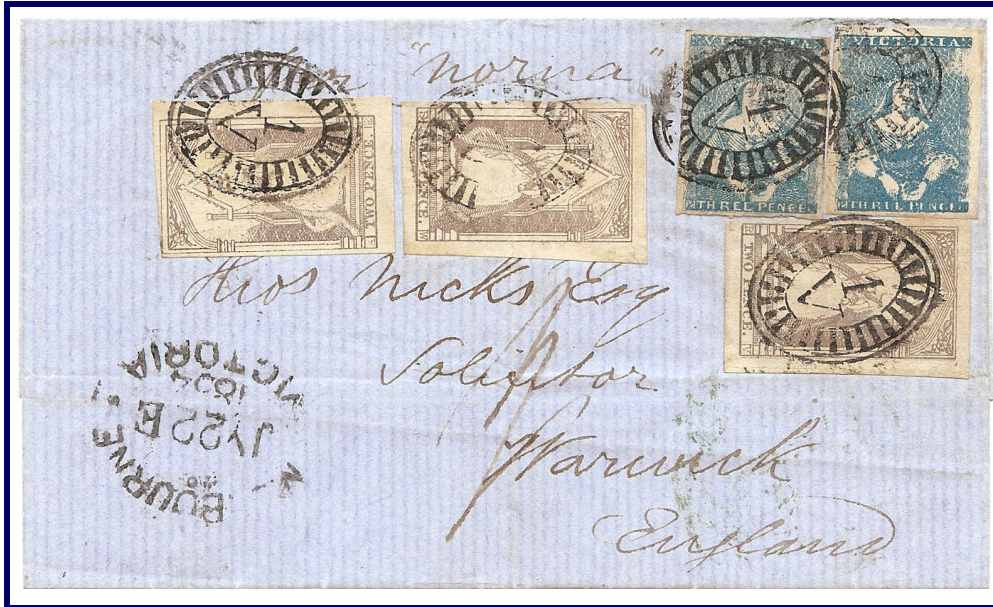 per "Norna"
VICTORIA
THREE PENCE
VICTORIA
THREE PENCE
1
V
TWO PENCE
1
V
1
V
TWO
Thos Nicks Esq
Solicitor
Warwick
England
BOURNE
VICTORIA
JY 22 E
1854